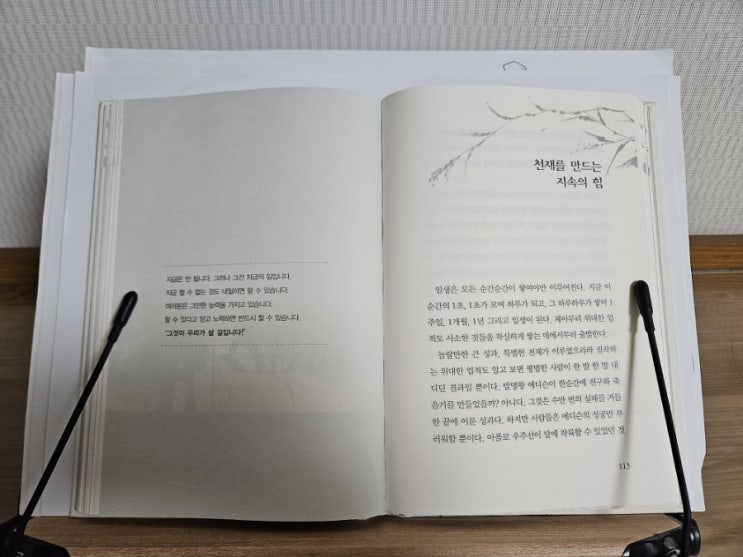 지금은 안 됩니다. 그러나 그건 지금의 일입니다.
지금 할 수 없는 것도 내일이면 할 수 있습니다.
여러분은 그만한 능력을 가지고 있습니다.
할 수 있다고 믿고 노력하면 반드시 할 수 있습니다.
'그것이 우리가 살 길입니다!'
천재를 만드는
지속의 힘
일생은 모든 순간순간이 쌓여야만 이루어진다. 지금 이
순간의 1초, 1초가 모여 하루가 되고, 그 하루하루가 쌓여 1
주일, 1개월, 1년 그리고 일생이 된다. 제아무리 위대한 업
적도 사소한 것들을 착실하게 쌓는 데에서부터 출발한다.
놀랄만한 큰 성과, 특별한 천재가 이루었으리라 짐작하
는 위대한 업적도 알고 보면 평범한 사람이 한 발 한 발 내
디딘 결과일 뿐이다. 발명왕 에디슨이 한순간에 전구와 축
음기를 만들었을까? 아니다. 그것은 수만 번의 실패를 거듭
한 끝에 이룬 성과다. 하지만 사람들은 에디슨의 성공만 부
러워할 뿐이다. 아폴로 우주선이 달에 착륙할 수 있었던 것
113